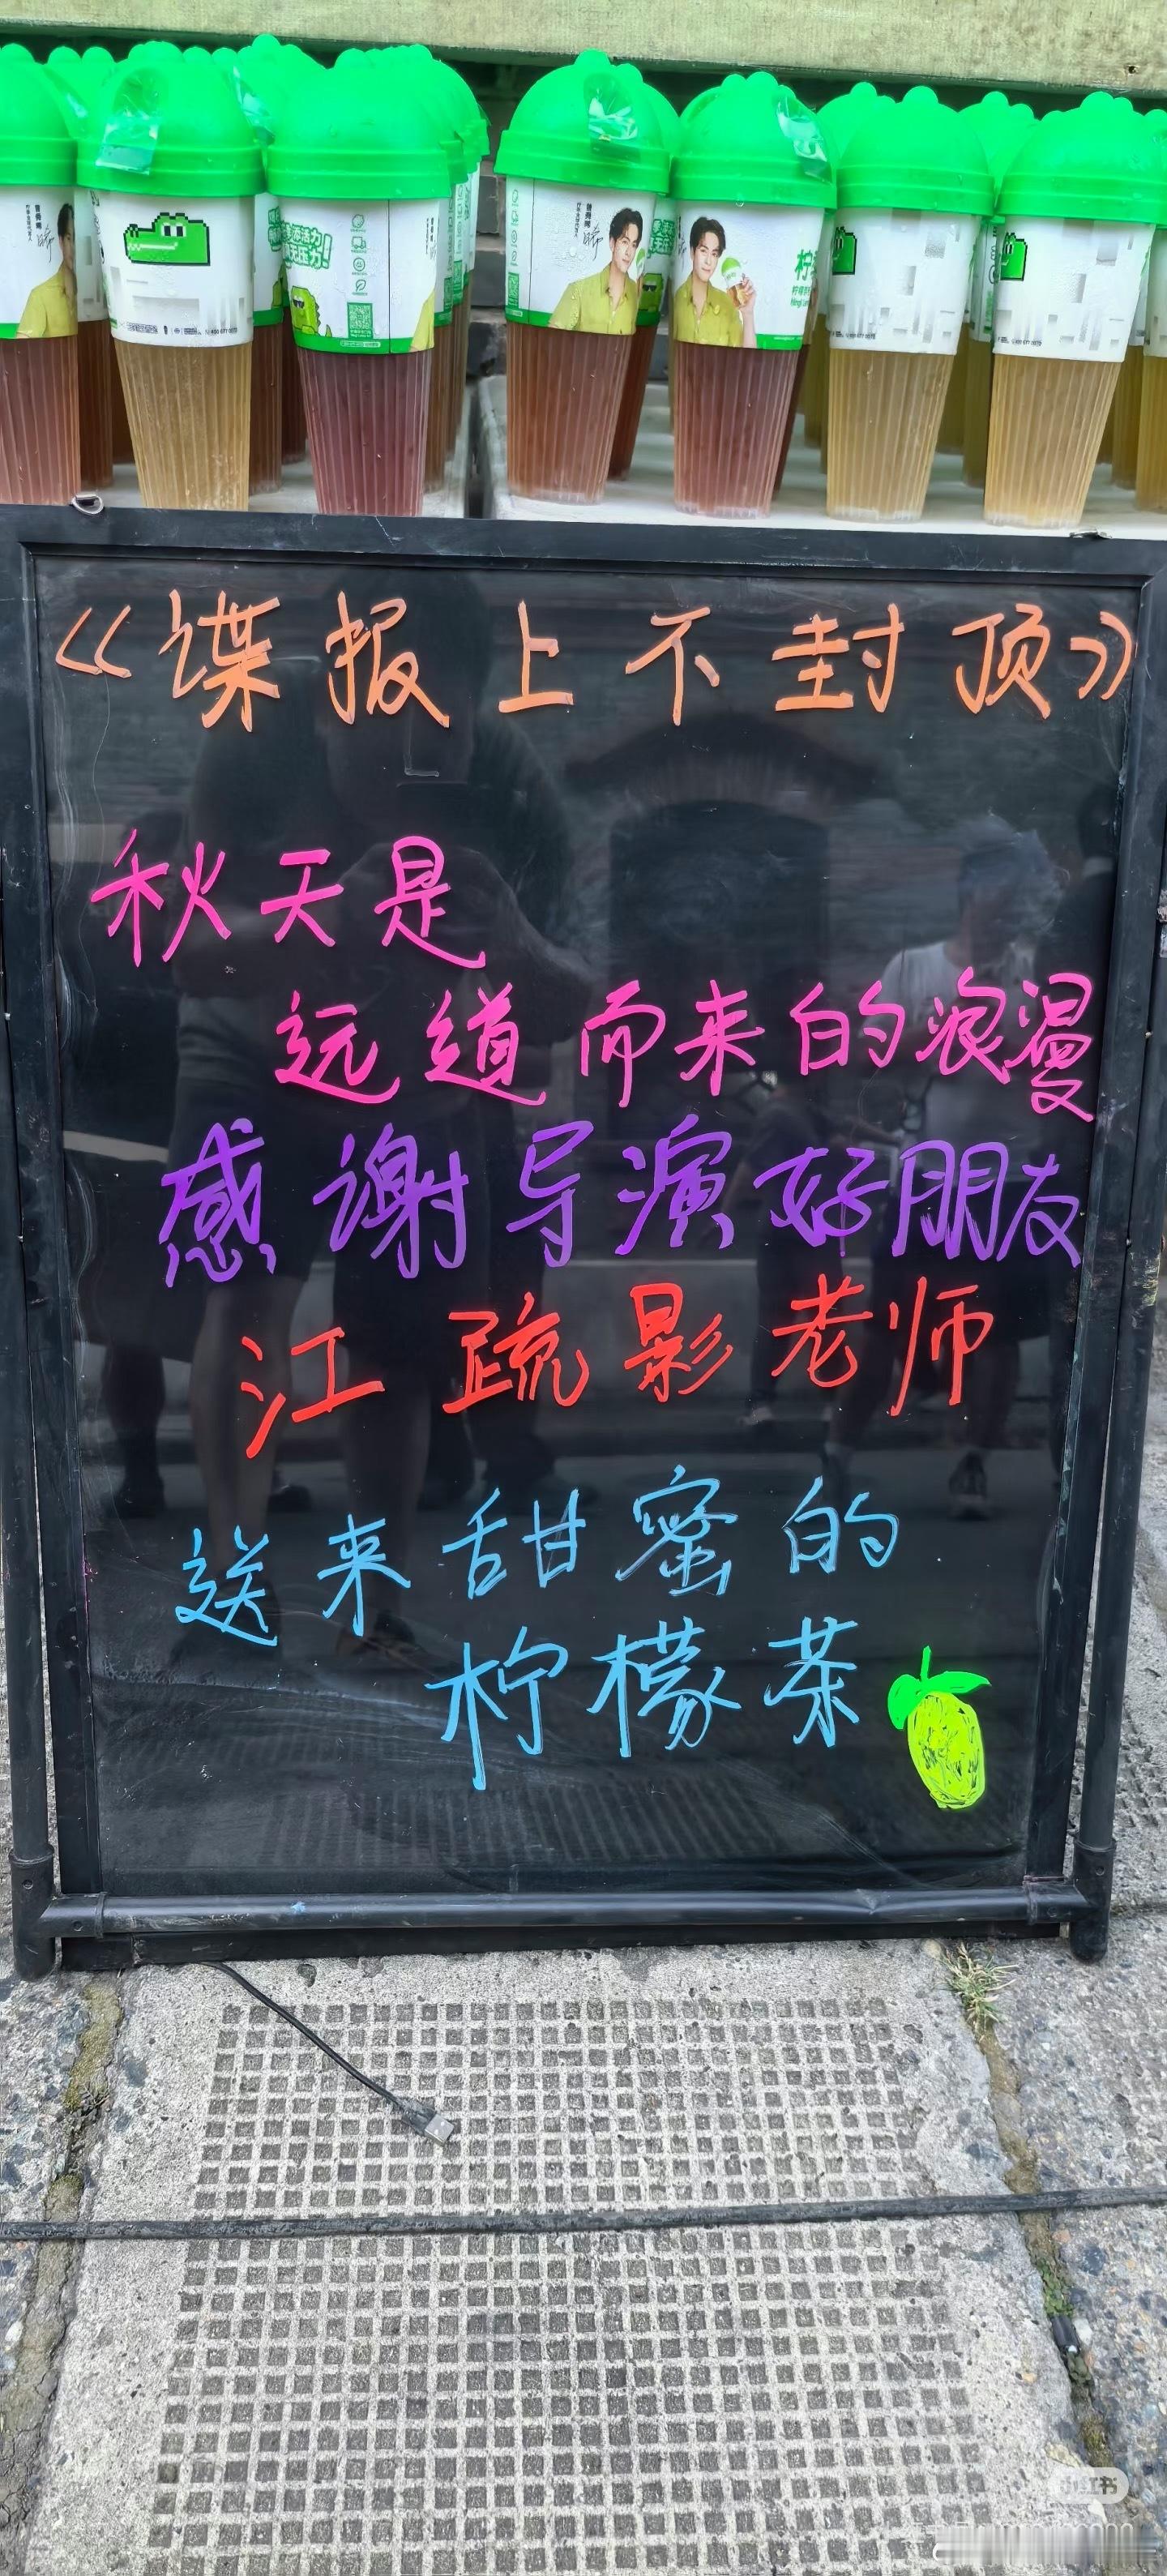 《谍报上不封顶》
秋天是
远道而来的浪漫
感谢导演好朋友
江疏影老师
送来甜蜜的
柠檬茶